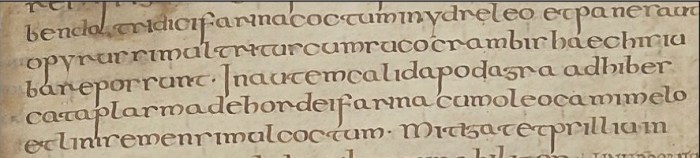 benda tridici farina coctum in ydreleo et pane
opyrus simul tritus cum suco crambis haec
bare possunt. In autem calida podagra adhibes
cataplasma de hordei farina cum oleo camimelo
et lini semen simul coctum. Mitigat et psillium